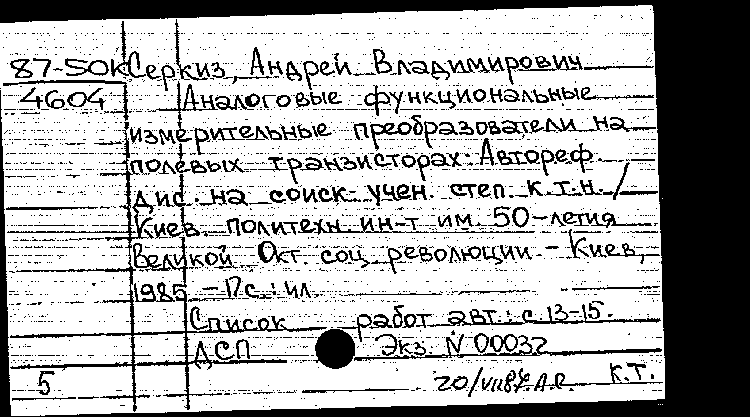 87-50К Серкиз, Андрей Владимирович
4604 Аналоговые функциональные
измерительные преобразователи на
полевых транзисторах: Автореф.
дис. на соиск. учен. степ. к.т.н. /
Киев. политехн. ин-т им. 50-летия
Великой Окт. соц. революции. - Киев,
1985 - 17с.: ил.
Список работ авт.: с. 13-15.
ДСП Экз. N 00032
5 20/VII87г. К.Т.